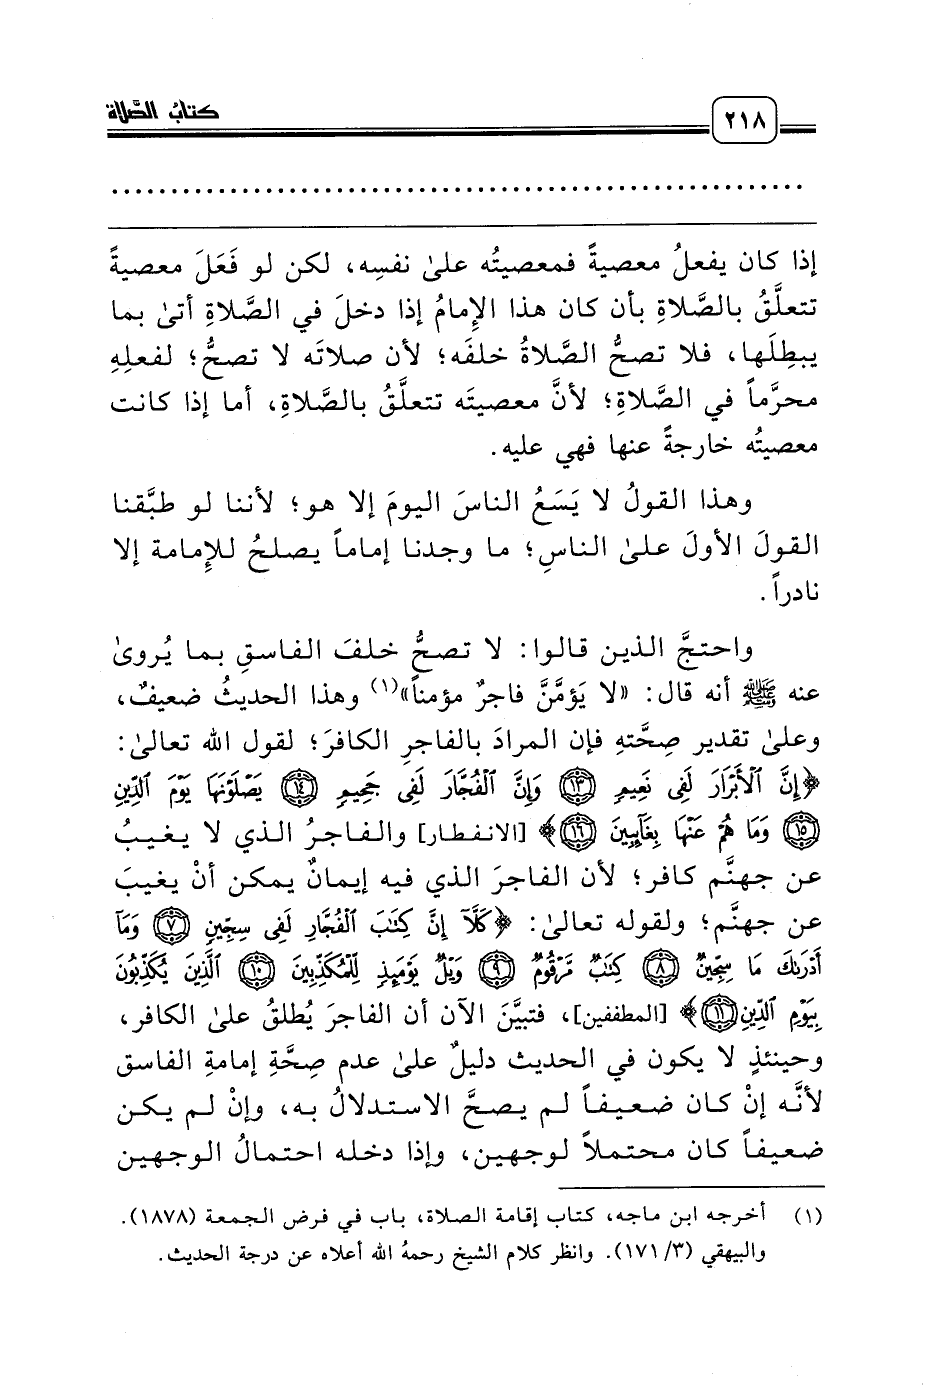 كتاب الصلاة
٢١٨
إذا كان يفعلُ معصيةً فمعصيتُه علىٰ نفسِه، لكن لو فَعَلَ معصيةً
تتعلَّقُ بالصَّلاةِ بأن كان هذا الإِمامُ إذا دخلَ في الصَّلاةِ أتىٰ بما
يبطِلَها، فلا تصحُّ الصَّلاةُ خلفَه؛ لأن صلاتَه لا تصحُّ؛ لفعلِهِ
محرَّماً في الصَّلاةِ؛ لأنَّ معصيتَه تتعلَّقُ بالصَّلاةِ، أما إذا كانت
معصيتُه خارجةً عنها فهي عليه.
وهذا القولُ لا يَسَعُ الناسَ اليومَ إلا هو؛ لأننا لو طبَّقنا
القولَ الأولَ علىٰ الناسِ؛ ما وجدنا إماماً يصلحُ للإِمامة إلا
نادراً.
واحتجَّ الذين قالوا: لا تصحُّ خلفَ الفاسقِ بما يُروىٰ
عنه ﷺ أنه قال: «لا يَؤمَّنَّ فاجرٌ مؤمناً»(١) وهذا الحديثُ ضعيفٌ،
وعلىٰ تقدير صِحَّتهِ فإن المرادَ بالفاجرِ الكافرَ؛ لقول الله تعالىٰ:
﴿إِنَّ ٱلْأَبْرَارَ لَفِى نَعِيمٍ ١٣ وَإِنَّ ٱلْفُجَّارَ لَفِى جَحِيمٍ ١٤ يَصْلَوْنَهَا يَوْمَ ٱلدِّينِ
١٥ وَمَا هُمْ عَنْهَا بِغَآئِبِينَ ١٦﴾ [الانفطار] والفاجرُ الذي لا يغيبُ
عن جهنَّم كافر؛ لأن الفاجرَ الذي فيه إيمانٌ يمكن أنْ يغيبَ
عن جهنَّم؛ ولقوله تعالىٰ: ﴿كَلَّآ إِنَّ كِتَٰبَ ٱلْفُجَّارِ لَفِى سِجِّينٍ ٧ وَمَآ
أَدْرَىٰكَ مَا سِجِّينٌ ٨ كِتَٰبٌ مَّرْقُومٌ ٩ وَيْلٌ يَوْمَئِذٍ لِّلْمُكَذِّبِينَ ١٠ ٱلَّذِينَ يُكَذِّبُونَ
بِيَوْمِ ٱلدِّينِ ١١﴾ [المطففين]، فتبيَّنَ الآن أن الفاجرَ يُطلقُ علىٰ الكافر،
وحينئذٍ لا يكون في الحديث دليلٌ علىٰ عدم صِحَّةِ إمامةِ الفاسق
لأنَّه إنْ كان ضعيفاً لم يصحَّ الاستدلالُ به، وإنْ لم يكن
ضعيفاً كان محتملاً لوجهين، وإذا دخله احتمالُ الوجهين
(١) أخرجه ابن ماجه، كتاب إقامة الصلاة، باب في فرض الجمعة (١٨٧٨).
والبيهقي (٣/ ١٧١). وانظر كلام الشيخ رحمهُ الله أعلاه عن درجة الحديث.